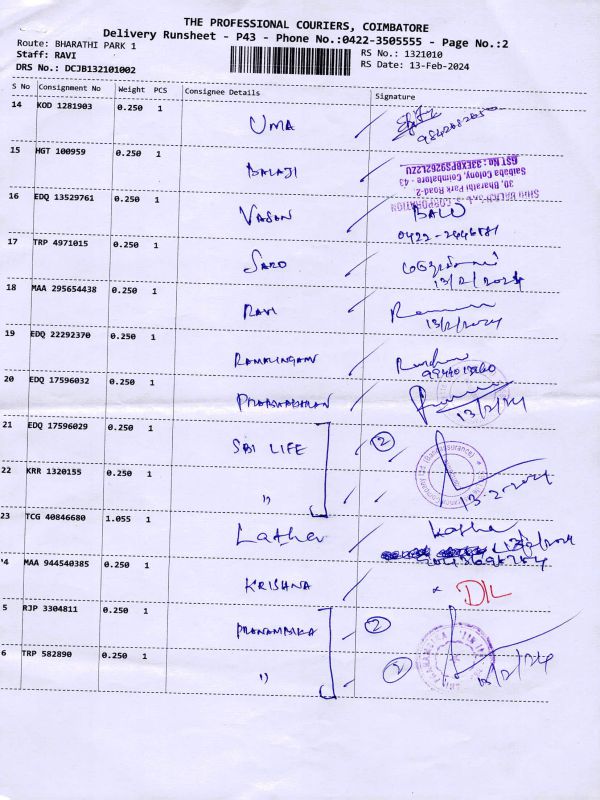 THE PROFESSIONAL COURIERS, COIMBATORE
Delivery Runsheet - P43 - Phone No.:0422-3505555 - Page No.:2
Route: BHARATHI PARK 1
RS No.: 1321010
Staff: RAVI
RS Date: 13-Feb-2024
DRS No.: DCJB132101002
S No Consignment No Weight PCS Consignee Details Signature
14 KOD 1281903 0.250 1 UMA
15 HGT 100959 0.250 1 BALAJI
GST No : 33EXDPS9262L2ZU
Saibaba Colony, Coimbatore - 43
30, Bharathi Park Road-2
CORPORATION
16 EDQ 13529761 0.250 1 VASAN BALU
17 TRP 4971015 0.250 1 SARO
13/2/2024
18 MAA 295654438 0.250 1 RAVI
13/2/2024
19 EDQ 22292370 0.250 1 RAMALINGAM
20 EDQ 17596032 0.250 1 PRABHAHARAN
13/2/24
21 EDQ 17596029 0.250 1 SBI LIFE 2
22 KRR 1320155 0.250 1 "
13-2-2024
23 TCG 40846680 1.055 1 Latha
13/2/2024
'4 MAA 944540385 0.250 1 KRISHNA DIL
5 RJP 3304811 0.250 1 PRANAMBIKA 2
6 TRP 582890 0.250 1 " 2
13/2/24